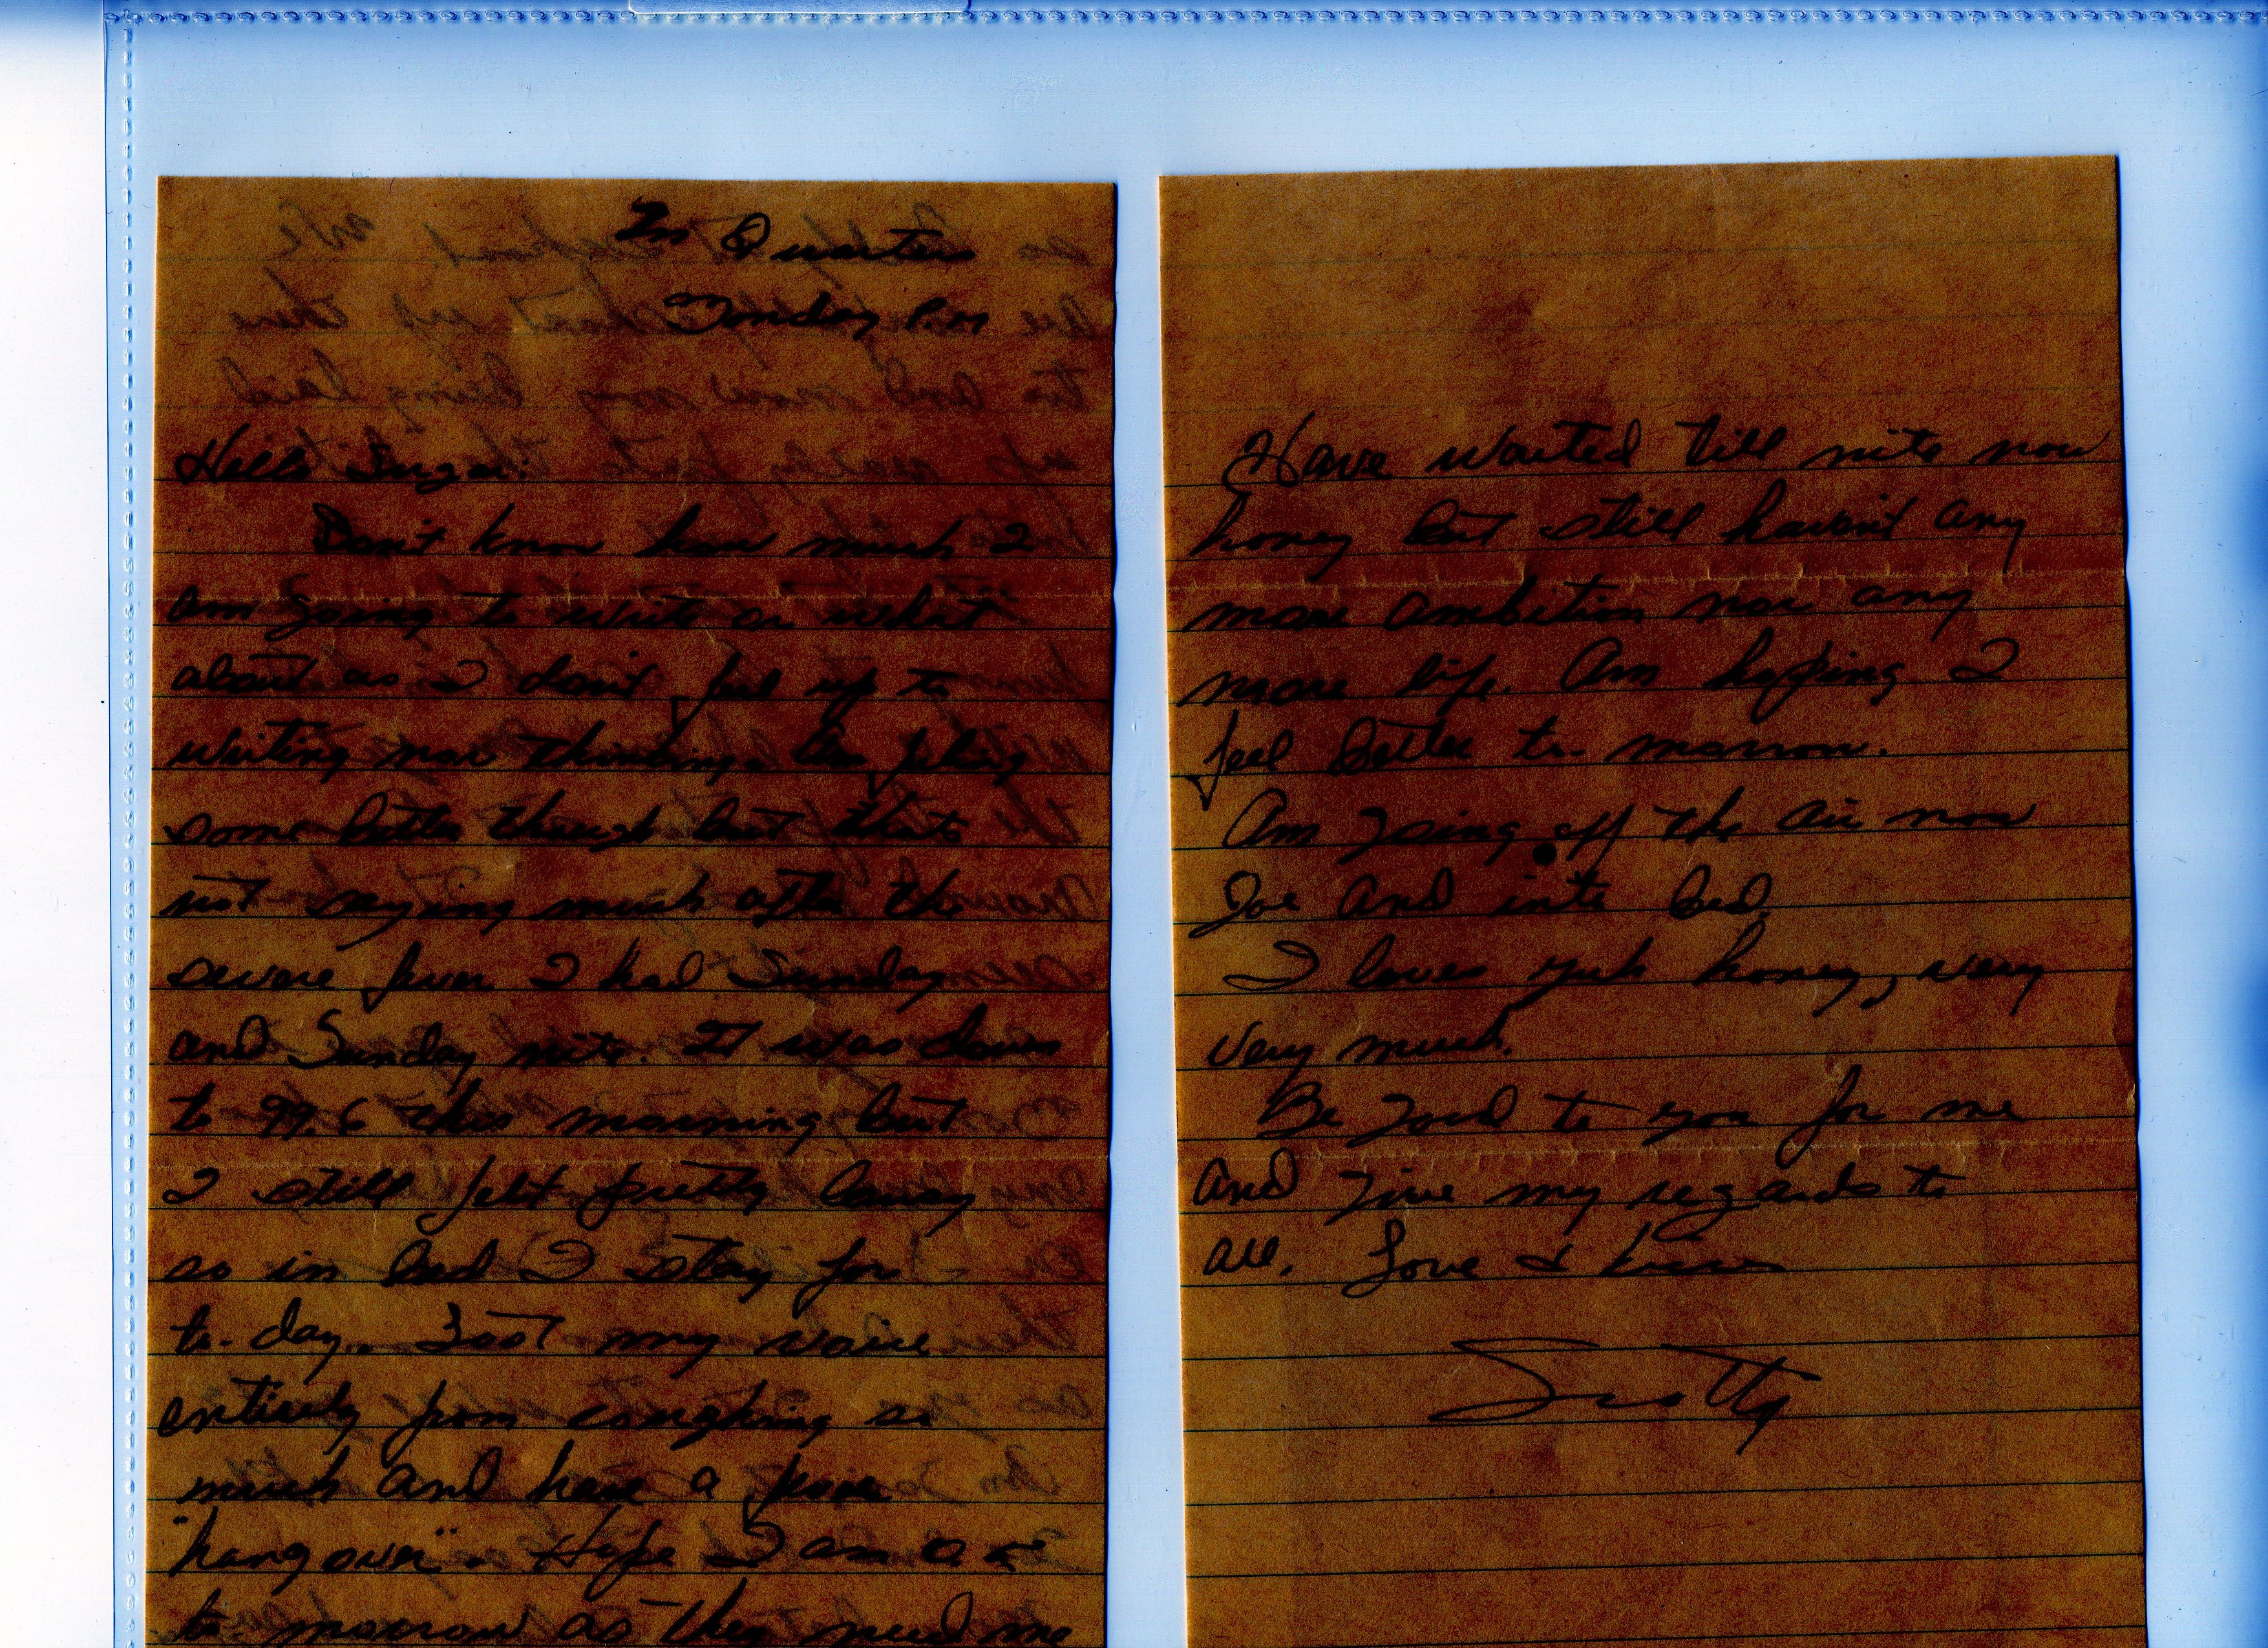 In Quarters
Monday P.M
Hello Sugar:
Don't know how much I
am going to write or what
about as I don't feel up to
writing nor thinking. Am feling
some better though but thats
not saying much after the
severe fever I had Sunday
and Sunday nite. It was down
to 99.6 this morning but
I still felt pretty lousy
so in bed I stay for
to-day. Lost my voice
entirely from coughing so
much and have a fever
"hang over". Hope I am O.K
to-morrow as they need me
Have waited till nite now
honey but still havent any
more ambition nor any
more life. Am hoping I
feel better to-morrow.
Am going off the air now
Joe and into bed.
I loves yuh honey, very
very much.
Be good to you for me
and give my regards to
all. Love & kisses
Scotty